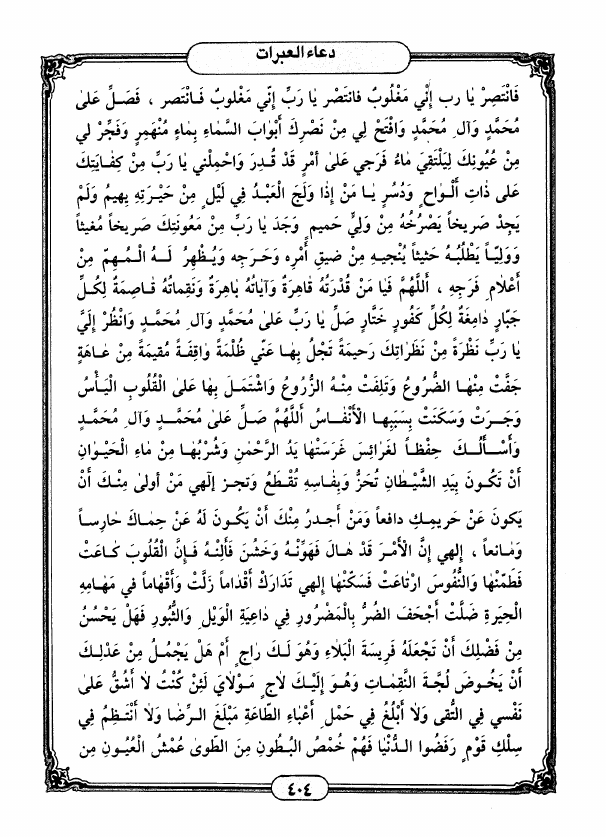 دعاء العبرات
فَانْتَصِرْ يٰا رب إنّي مَغْلُوبٌ فانتَصْر يٰا رَبِّ إنّي مَغْلوبٌ فَـانْتَصر ، فَصَـلِّ عَلىٰ
مُحَمَّدٍ وَآلِ مُحَمَّدٍ وَافْتَح لِي مِنْ نَصْرِكَ أَبْوٰابَ السَّمٰاءِ بِمٰاءٍ مُنْهَمِرٍ وَفَجِّرْ لي
مِنْ عُيُونِكَ لِيَلْتَقِيَ مٰاءُ فَرَجي عَلىٰ أمْرٍ قَدْ قُدِرَ وَاحْمِلْني يٰا رَبِّ مِنْ كِفٰايَتِكَ
عَلىٰ ذٰاتِ أَلْـوٰاحٍ وَدُسُرٍ يٰـا مَنْ إذٰا وَلَجَ الْعَبْـدُ في لَيْلٍ مِنْ حَيْرَتِهِ يَهيمُ وَلَمْ
يَجِدْ صَريخاً يَصْرُخُهُ مِنْ وَلِيٍّ حَميمٍ وَجَدَ يٰا رَبِّ مِنْ مَعُونَتِكَ صَريخاً مُغيثاً
وَوَلِيّـاً يَطْلُبُـهُ حَثيثاً يُنْجيـهِ مِنْ ضيقِ أمْرِه وَحَرَجِه وَيُظْهِرُ لَـهُ الْـمُهِمّ مِنْ
أعْلٰامِ فَرَجِهِ ، أَللَّهُمَّ فَيٰا مَنْ قُدْرَتُهُ قٰاهِرَةٌ وَآيٰاتُهُ بٰاهِرَةٌ وَنَقِمٰاتُهُ قٰـاصِمَةٌ لِكُـلِّ
جَبّٰارٍ دٰامِغَةٌ لِكُلِّ كَفُورٍ خَتّٰارٍ صَلِّ يٰا رَبِّ عَلىٰ مُحَمَّدٍ وَآلِ مُحَمَّـدٍ وَانْظُرْ إلَيَّ
يٰا رَبِّ نَظْرَةً مِنْ نَظَرٰاتِكَ رَحيمَةً تَجْلُ بِهٰـا عَنّي ظُلْمَةً وٰاقِفَـةً مُقيمَةً مِنْ عٰـاهَةٍ
جَفَّتْ مِنْهٰـا الضُّرُوعُ وَتَلِفَتْ مِنْـهُ الزُّرُوعُ وَاشْتَمَـلَ بِهٰا عَلَى الْقُلُوبِ الْيَـأْسُ
وَجَـرَتْ وَسَكَنَتْ بِسَبَبِهٰا الأنْفٰـاسُ أَللَّهُمَّ صَلِّ عَلىٰ مُحَمَّـدٍ وَآلِ مُحَمَّدٍ
وَأَسْـأَلُـكَ حِفْظـاً لغَرٰائِسَ غَرَسَتْهٰا يَدُ الرَّحْمٰنِ وَشُرْبُهٰـا مِنْ مٰاءِ الْحَيَـوٰانِ
أنْ تَكُـونَ بِيَدِ الشَّيْطٰـانِ تُحَزُّ وَبِفٰاسِهِ تُقْطَـعُ وَتجز إلٰهي مَنْ أولىٰ مِنْـكَ أنْ
يَكونَ عَنْ حَريمِكَ دافعاً وَمَنْ أجدرُ مِنْكَ أنْ يَكُـونَ لَهُ عَنْ حِمٰاكَ حٰارِسـاً
وَمٰانعاً ، إلٰهي إنَّ الأمْـرَ قَدْ هٰـالَ فَهَوِّنْـهُ وَخَشُنَ فَألِنْـهُ فَـإنَّ الْقُلُوبَ كٰـاعَتْ
فَطَمِّنْهٰا وَالنُّفُوسَ ارتٰاعَتْ فَسَكِّنْهٰا إلٰهي تَدارَكْ أقْدٰاماً زَلَّتْ وَأفْهٰاماً في مَهٰامِهِ
الْحيَرةِ ضَلَّتْ أجْحَفَ الضُرُّ بِالْمَضْرُورِ في دٰاعِيَةِ الْوَيْلِ وَالثُّبُورِ فَهَلْ يَحْسُنُ
مِنْ فَضْلِكَ أنْ تَجْعَلَهُ فَريسَةَ الْبَلٰاءِ وَهُوَ لَـكَ رٰاجٍ أمْ هَلْ يَجْمُلُ مِنْ عَدْلِـكَ
أنْ يَخُـوضَ لُجَّةَ النَّقِمٰـاتِ وَهُـوَ إلَيْـكَ لٰاجٍ مَـوْلٰايَ لَئِنْ كُنْتُ لٰا أشُقُّ عَلىٰ
نَفْسي فِي التُّقىٰ وَلٰا أبْلُـغُ في حَمْلِ أعْبٰاءِ الطّٰاعَةِ مَبْلَغَ الـرِّضٰا وَلٰا أنْتَظِـمُ في
سِلْكِ قَوْمٍ رَفَضُوا الـدُّنْيٰا فَهُمْ خُمْصُ الْبُـطُونِ مِنَ الطَّوىٰ عُمْشُ الْعُيُـونِ مِن
٤٠٤